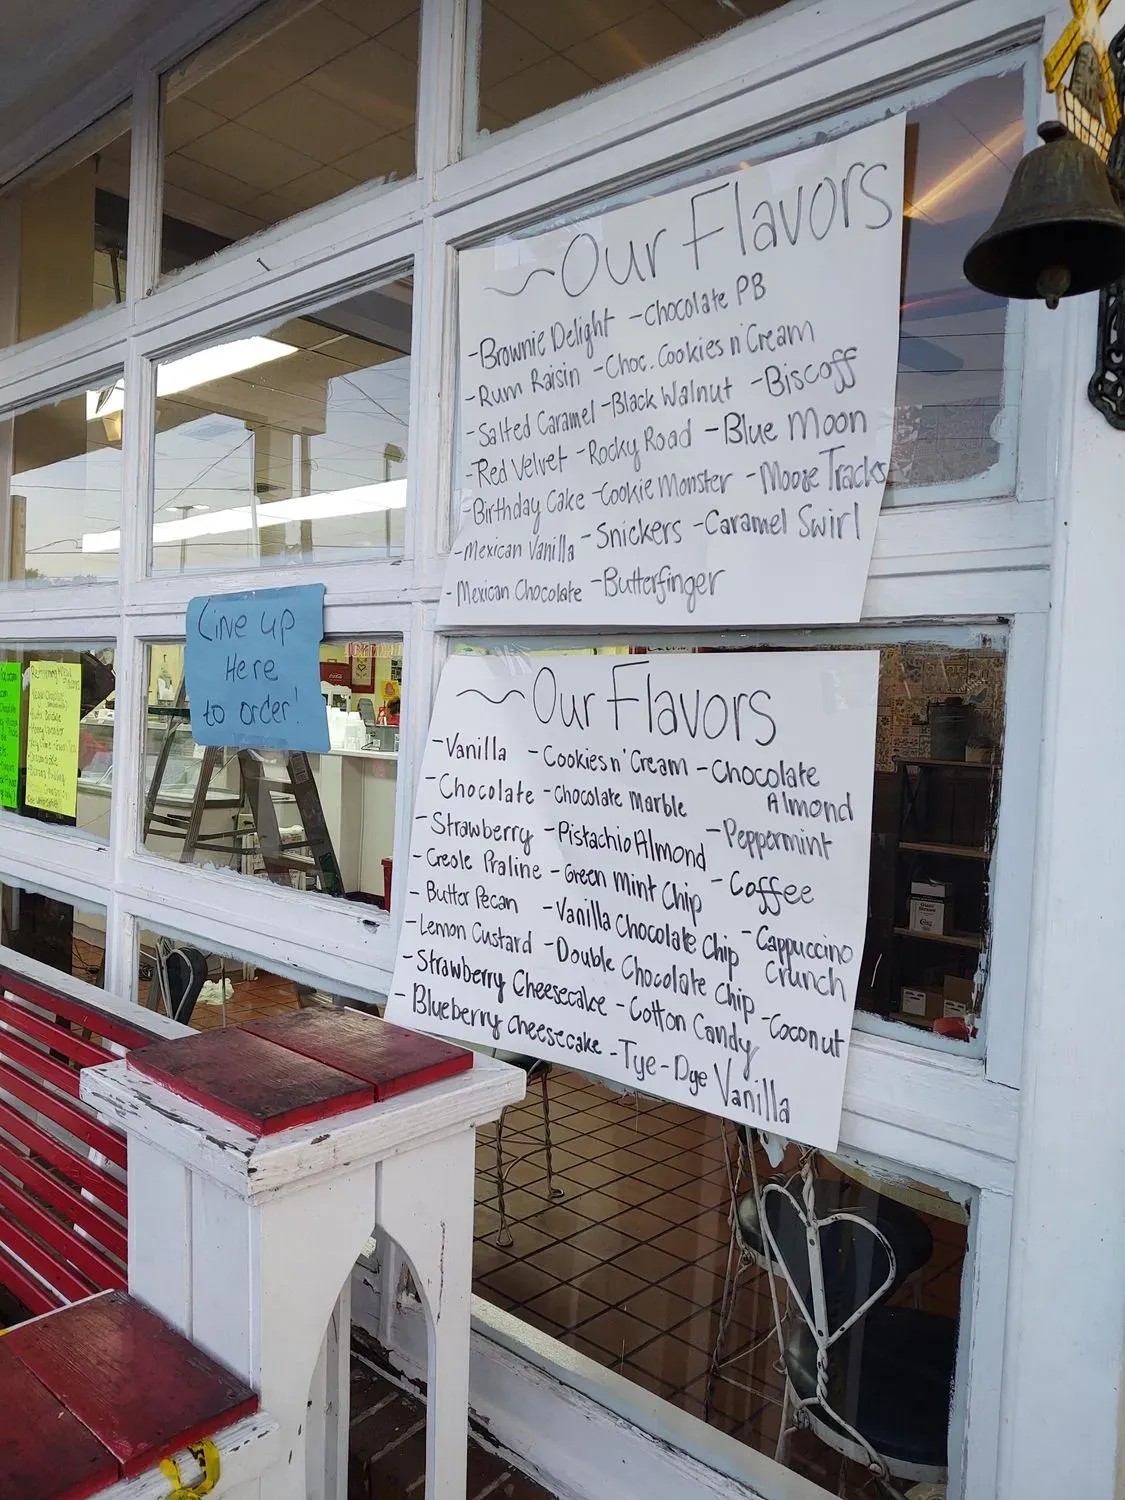 ~Our Flavors
-Brownie Delight -Chocolate PB
-Rum Raisin -Choc. Cookies n Cream
-Salted Caramel -Black Walnut -Biscoff
-Red Velvet -Rocky Road -Blue Moon
-Birthday Cake -Cookie Monster -Moose Tracks
-Mexican Vanilla -Snickers -Caramel Swirl
-Mexican Chocolate -Butterfinger
Line up
Here
to order!
~Our Flavors
-Vanilla -Cookies n' Cream -Chocolate
Almond
-Chocolate -Chocolate Marble
-Strawberry -Pistachio Almond -Peppermint
-Creole Praline -Green Mint Chip -Coffee
-Butter Pecan -Vanilla Chocolate Chip -Cappuccino
Crunch
-Lemon Custard -Double Chocolate Chip -Coconut
-Strawberry Cheesecake -Cotton Candy
-Blueberry Cheesecake -Tye-Dye Vanilla